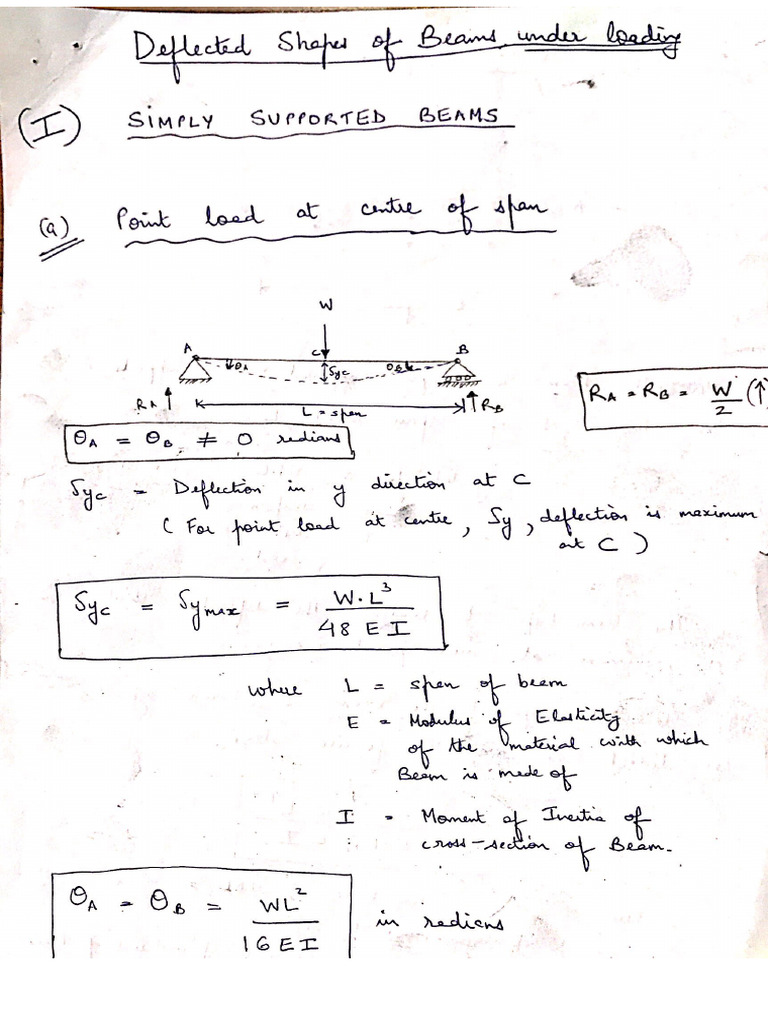 Deflected Shapes of Beams under loading
(I) SIMPLY SUPPORTED BEAMS
(a) Point load at centre of span
W
A C B
θA δyc θB
RA L = span RB
RA = RB = W/2 (↑)
θA = θB ≠ 0 redians
δyc = Deflection in y direction at C
( For point load at centre, δy, deflection is maximum
at C )
δyc = δymax = W·L³/48 EI
where L = span of beam
E = Modulus of Elasticity
of the material with which
Beam is made of
I = Moment of Inertia of
cross-section of Beam.
θA = θB = WL²/16 EI in redians